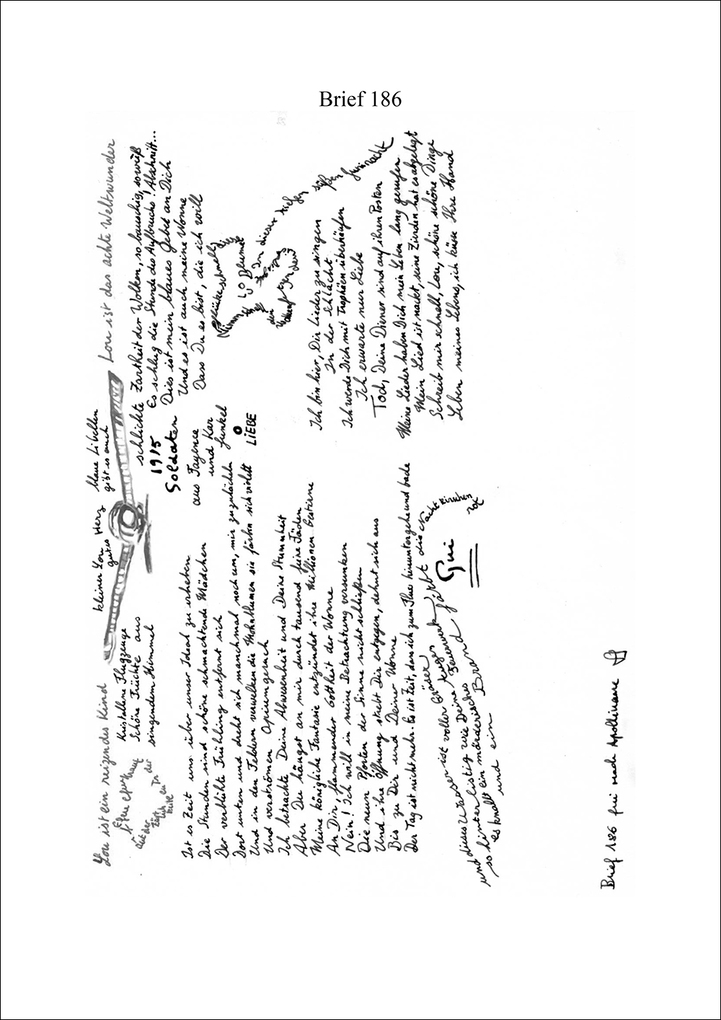 Brief 186
Lou ist ein reizendes Kind
Lou ist das achte Weltwunder
kleiner Lou
gutes
Herz
blaue Libellen
gibt es auch
Kristallene Flugzeuge
Schöne Früchte aus
singendem Himmel
schlichte Zartheit der Wolken, so bauschig, so weiß
1915 Es schlug die Stunde des Aufbruchs! Abschnitt...
Soldaten Dies ist mein blaues Gebet an Dich
aus Fayence Und es ist auch meine Wonne
und Kar Dass Du es bist, die ich will
funkel
O
LIEBE
Ist es Zeit uns über unser Ideal zu erheben
Die Stunden sind schöne schmachtende Mädchen
Der verblühte Frühling entfernt sich
Dort unten und dreht sich manchmal noch um, mir zuzulächeln
Und in den Feldern verwelken die Mohnblumen sie färben sich violett
Und verströmen Opiumgeruch
Ich betrachte Deine Abwesenheit und Deine Stummheit
Aber Du hängst an mir durch tausend feine Fäden
Meine königliche Fantasie entzündet ihre Millionen Gestirne
An Dir flammender Gottheit der Wonne
Nein! Ich will in meine Betrachtung versunken
Die neun Pforten der Sinne nicht schließen
Und ihre Öffnung strebt Dir entgegen, dehnt sich aus
Bis zu Dir und Deiner Wonne
Der Tag ist nicht mehr. Es ist Zeit, dass ich zum Fluss hinuntergehe und bade
und dieses Wasser ist voller Gräser
und hinterlistig wie Deine Augen
so ein mörderischer Brand
es knallt und ein Feuerwerk färbt die Nacht kirschenrot
Gui
Ich bin hier, Dir Lieder zu singen
In der Schlacht
Ich werde Dich mit Trophäen überhäufen
Ich erwarte nur Liebe
Tod, Deine Diener sind auf ihren Posten
Meine Lieder haben Dich mein Leben lang gerufen
Mein Lied ist nackt, seine Zierden hat es abgelegt
Schreib mir schnell, Lou, schöne schöne Dinge
Leben meines Lebens, ich küsse Ihre Hand
Brief 186 frei nach Apollinaire